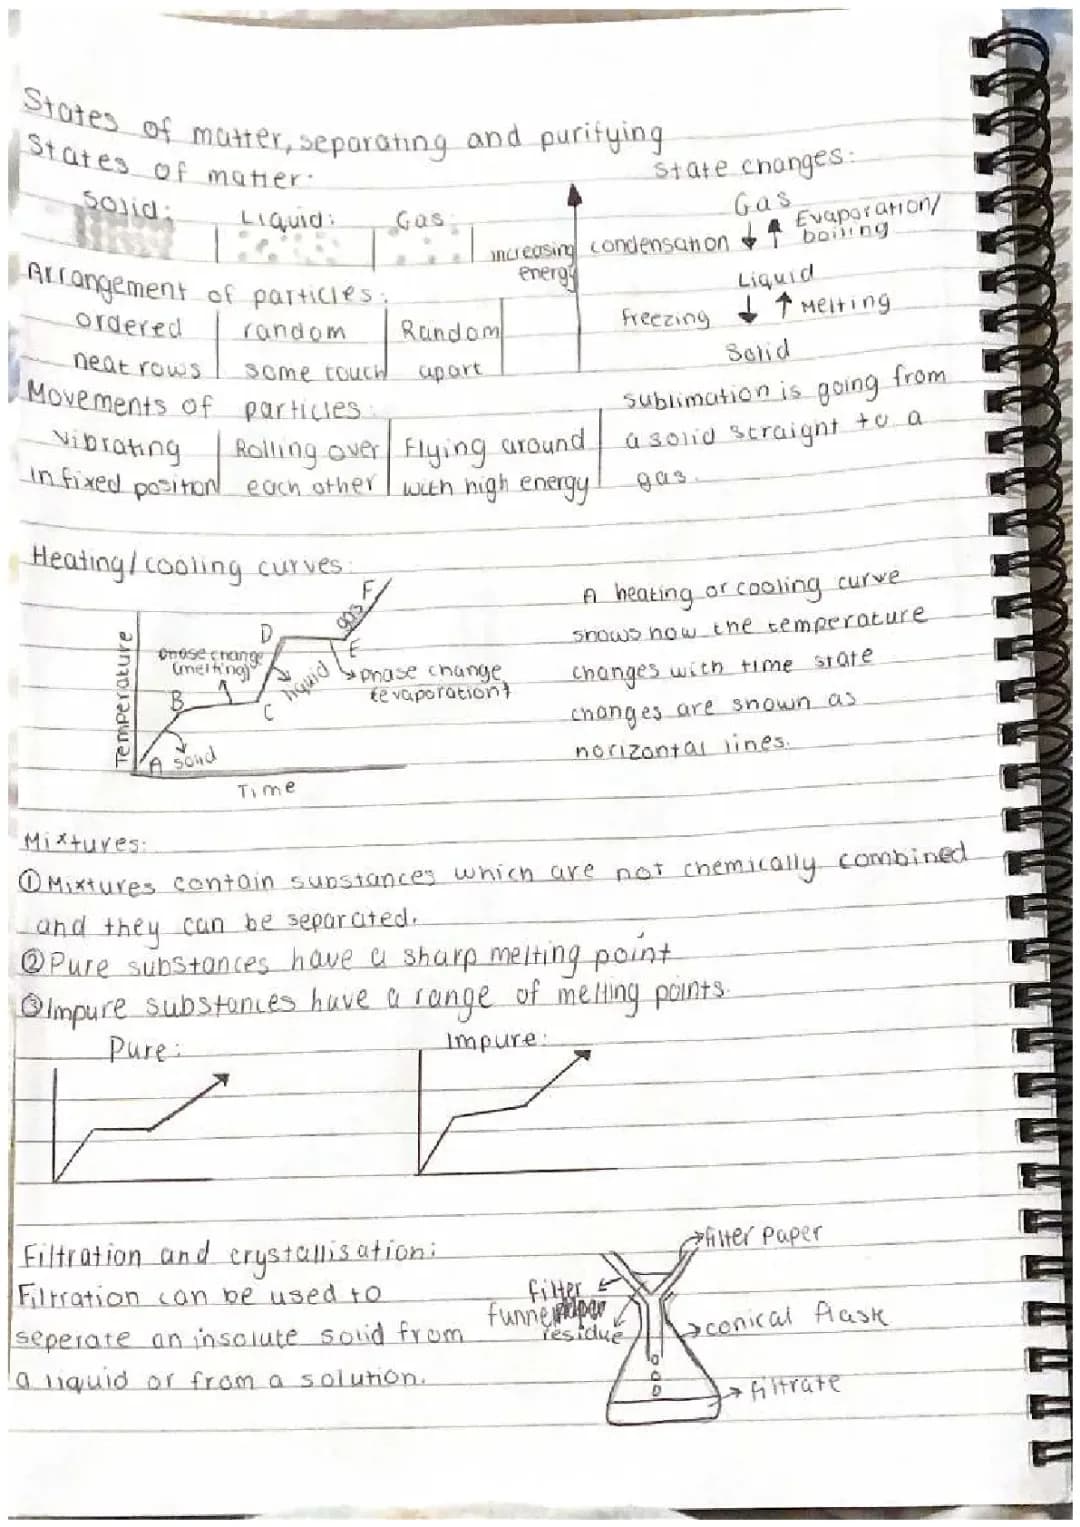 States of matter, separating and purifying
States of matter:
Solid:
Liquid:
Gas:
Arrangement of particles:
ordered
neat rows
random
some touch
Random
apart
Movements of particles:
Vibrating
in fixed position
Rolling over
each other
Flying around
with high energy
increasing
energy
State changes:
Gas
condensation
Evaporation/
boiling
Liquid
freezing
Melting
Solid
sublimation is going from
a solid straight to a
gas.
Heating/cooling curves:
Temperature
Time
A solid
B
phase change
(melting)
C
liquid
D
E
phase change
(evaporation)
gas
F
A heating or cooling curve
shows how the temperature
changes with time state
changes are shown as
horizontal lines.
Mixtures:
① Mixtures contain substances which are not chemically combined
and they can be separated.
② Pure substances have a sharp melting point
③ Impure substances have a range of melting points.
Pure:
Impure:
Filtration and crystallisation:
Filtration can be used to
seperate an insolute solid from
a liquid or from a solution.
filter paper
filter
funnel
residue
conical flask
filtrate